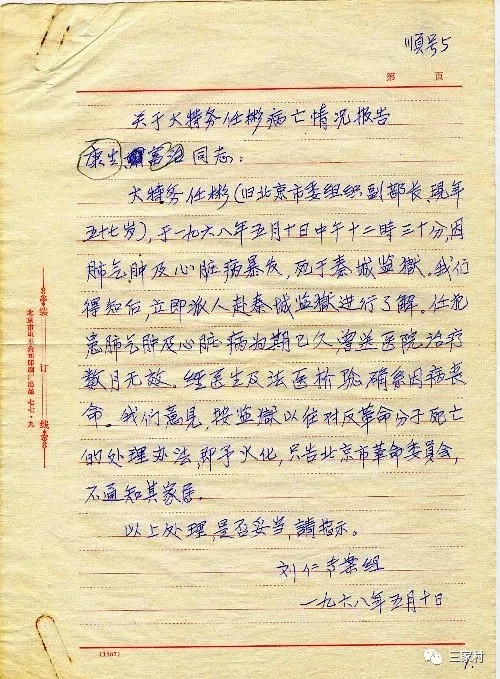 顺号5
第 页
关于大特务任彬病亡情况报告
康生 富治同志：
大特务任彬(旧北京市委组织副部长、现年
五十七岁)，于一九六八年五月十日中午十二時三十分，因
肺气肿及心脏病暴发，死于秦城监獄。我们
得知后，立即派人赴秦城监獄进行了解。任犯
患肺气肿及心脏病为期已久，曾送医院治疗
数月无效。经医生及法医检验，确系因病丧
命。我们意见，按监獄以往对反革命分子死亡
的处理办法，即予火化，只告北京市革命委员会，
不通知其家居。
以上处理，是否妥当，請指示。
刘仁专案组
一九六八年五月十日
装订线
北京市 出品 七七·九
(1167)
三家村
1.